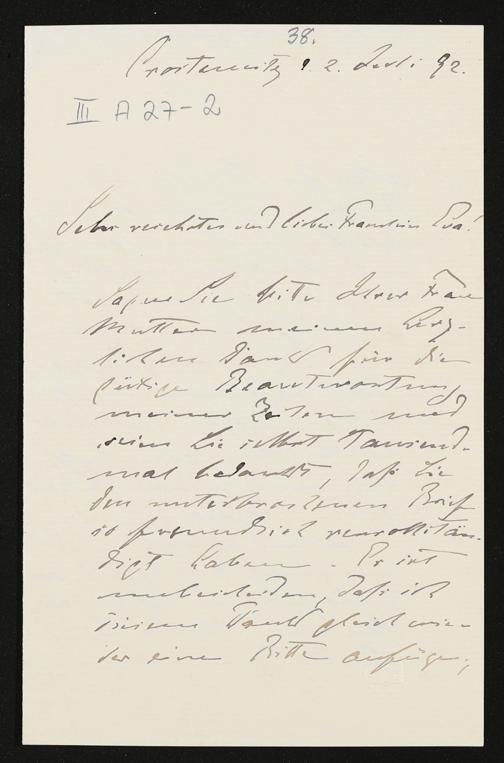 38.
Crostewitz 2. Juli 92.
III A 27-2
Sehr verehrtes und liebes Fräulein Eva!
Sagen Sie bitte Ihrer Frau
Mutter meinen herz-
lichen Dank für die
gütige Beantwortung
meiner Zeilen und
seien Sie selbst tausend-
mal bedankt, daß Sie
den unterbrochenen Brief
so freundlich vervollstän-
digt haben. Es ist
unbescheiden, daß ich
diesem Dank gleich wie-
der eine Bitte anfüge,